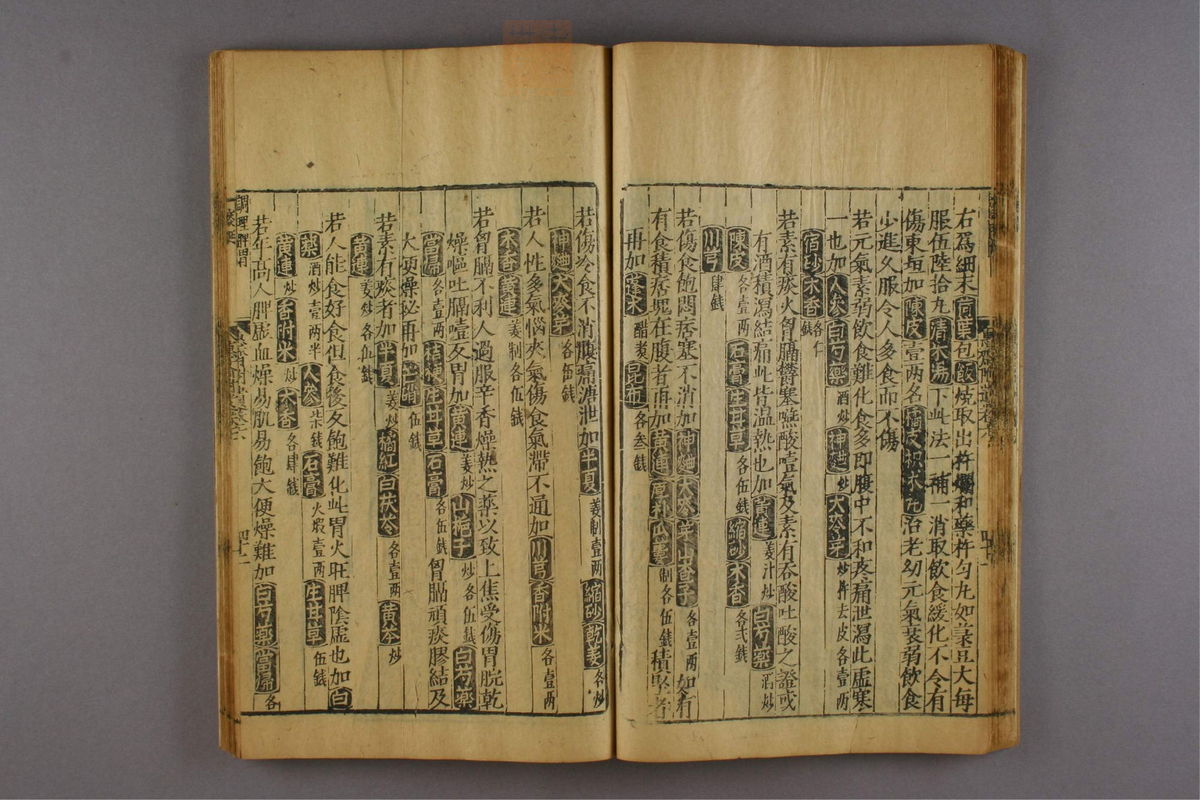 右為細末荷葉包飯燒取出杵爛和藥杵勻丸如菉豆大每
服伍陸拾丸清米湯下此法一補一消取飲食緩化不令有
傷東垣加陳皮壹兩名橘皮枳朮丸治老幼元氣衰弱飲食
少進久服令人多食而不傷
若元氣素弱飲食難化食多即腹中不和疼痛泄瀉此虛寒
一也加人參白芍藥酒炒神麯炒大麥芽炒杵去皮各壹两
宿砂木香各仁錢
若素有痰火胷膈欝塞嚥酸噫氣及素有吞酸吐酸之證或
有酒積瀉結痛此皆温熱也加黄連姜汁炒白芍藥酒炒
陳皮各壹两石膏生甘草各伍錢縮砂木香各弍錢
川芎肆錢
若傷食飽悶痞塞不消加神麯大麥芽山查子各壹两如有
有食積痞塊在腹者再加黄連厚朴瓜蔞制各伍錢積聚者
再加蓬朮醋煑昆布各叁錢
若傷冷食不消腹痛溏泄加半夏姜制壹两縮砂乾姜各炒
神麯大麥芽各伍錢
若人性多氣惱夾氣傷食氣滯不通加川芎香附米各壹两
木香黄連姜制各伍錢
若胷膈不利人過服辛香燥熱之藥以致上焦受傷胃脘乾
燥嘔吐膈噎反胃加黄連姜炒山梔子炒各伍錢白芍藥
當歸各壹两桔梗生甘草石膏各伍錢胷膈頑痰膠結及
大便燥秘再加芒硝伍錢
若素有痰者加半夏姜炒橘紅白茯苓各壹两黄芩炒
黄連姜炒各伍錢
若人能食好食但食後反飽難化此胃火旺脾陰虛也加白
藥酒炒壹两半人參柒錢石膏火煅壹两生甘草伍錢
黄連炒香附米炒木香各肆錢
若年高人脾虛血燥易肌易飽大便燥難加白芍藥當歸各
調理脾胃